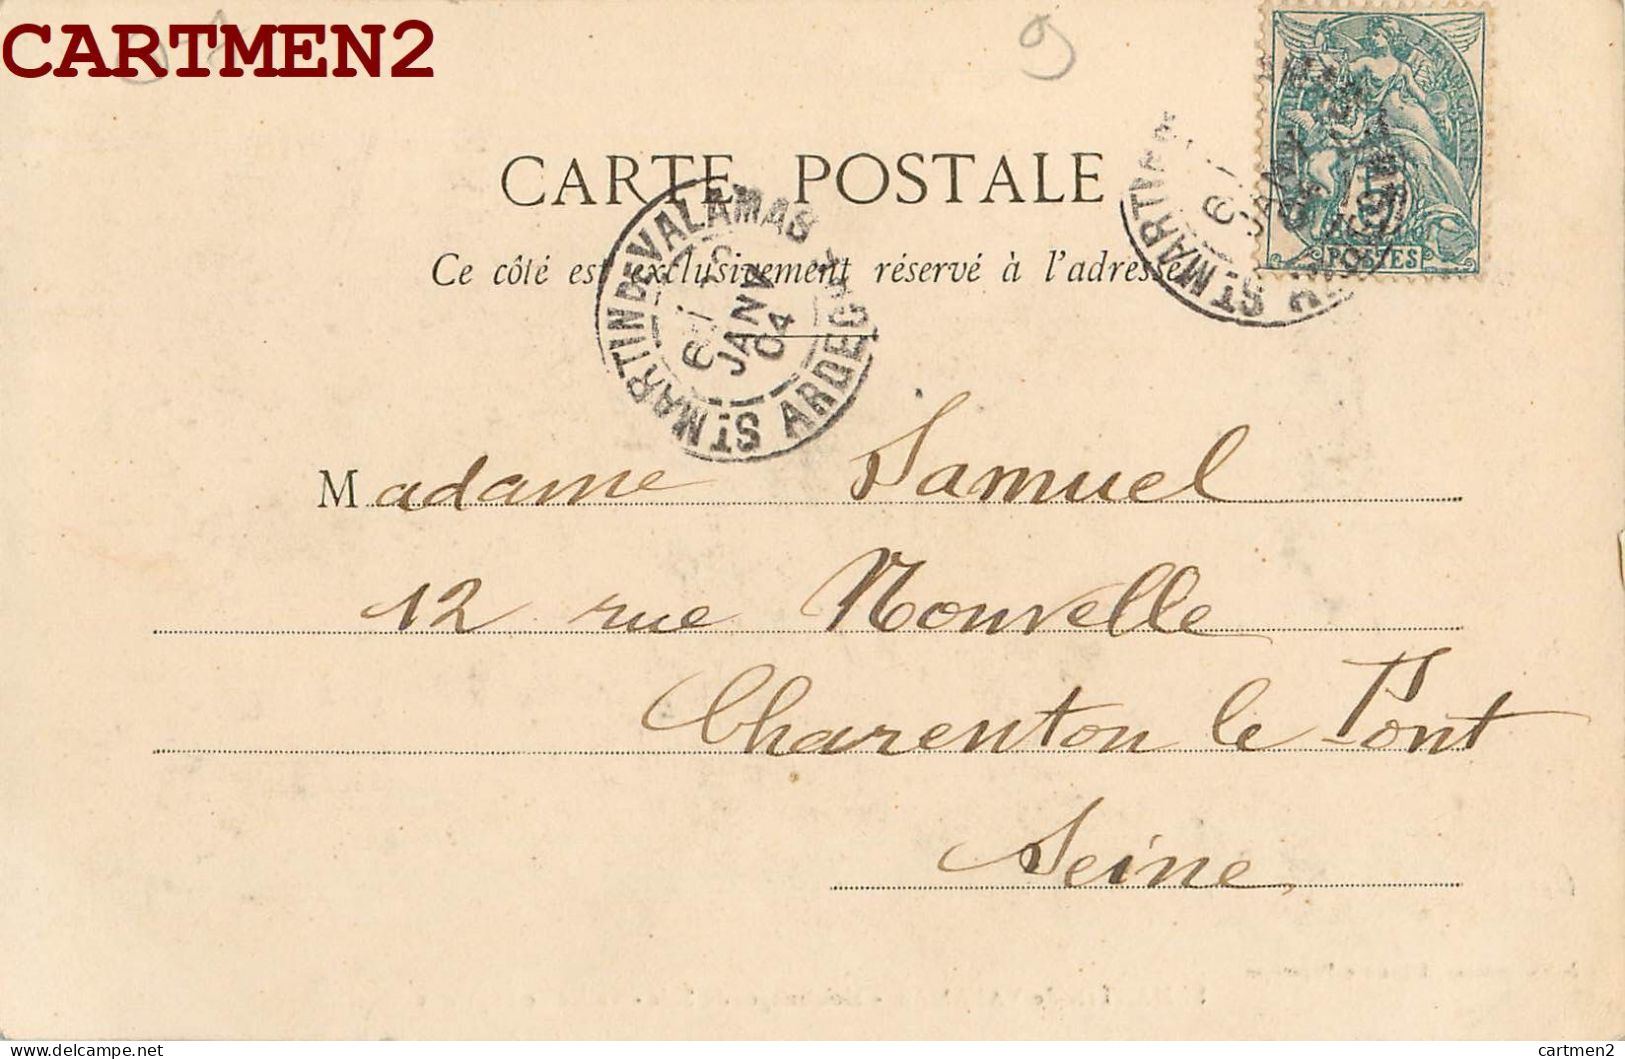 CARTMEN2
9
CARTE POSTALE
Ce côté est exclusivement réservé à l'adresse
ST MARTIN DE VALAMAS
6 JANV 04
ARDECHE
POSTES
Madame Samuel
12 rue Nouvelle
Charenton le Pont
Seine
delcampe.net
cartmen2